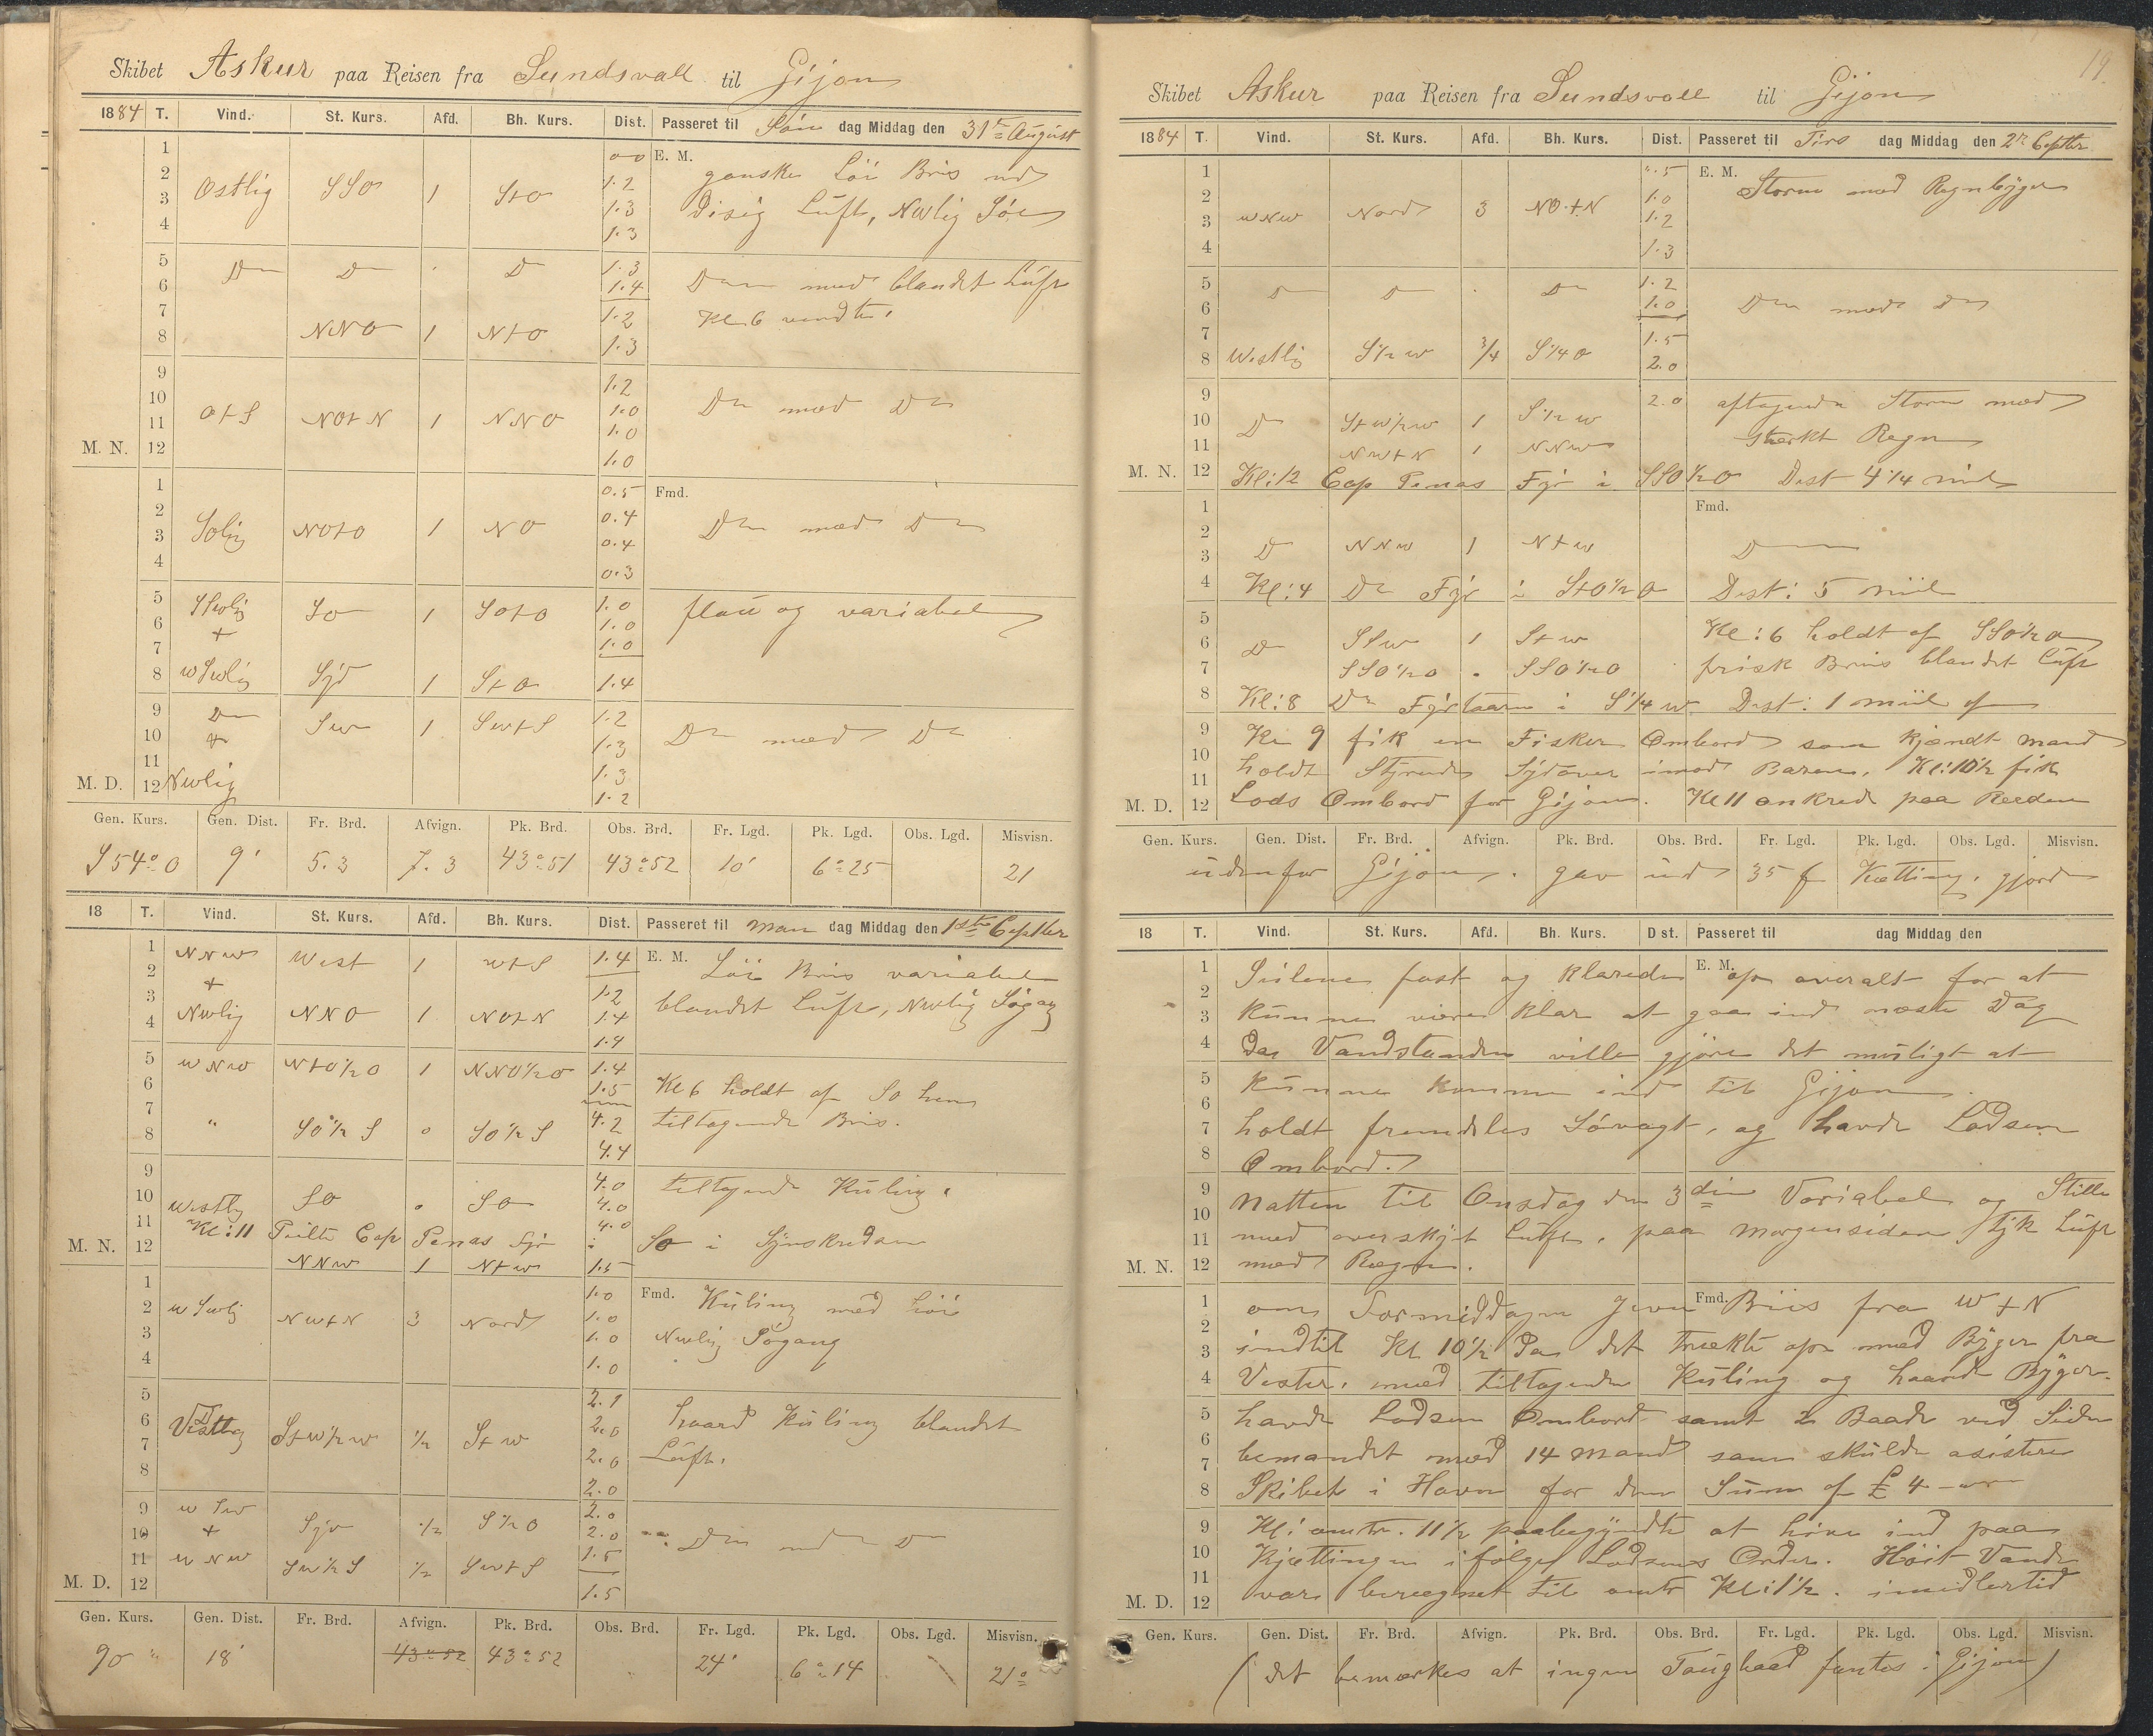 Skibet Askur paa Reisen fra Sundsvall til Gijon
1884 T. Vind. St. Kurs. Afd. Bh. Kurs. Dist. Passeret til Søn dag Middag den 31te August
1 0.0 E. M. ganske Löi Bris med
2 Ostlig SSO 1 StO 1.2
3 1.3 disig Luft, NWlig Söe
4 1.3
5 Do Do . Do 1.3 Do med blandet Luft
6 1.4
7 1.2 Kl 6 vendte.
8 NNO 1 NtO 1.3
9 1.2
10 OtS NOtN 1 NNO 1.0 Do med Do
11 1.0
M. N. 12 1.0
1 0.5 Fmd.
2 Solig NOtO 1 NO 0.4 Do med Do
3 0.4
4 0.3
5 SSWlig SO 1 SOtO 1.0 flau og variabel
6 + 1.0
7 1.0
8 WSWlig Syd 1 StO 1.4
9 Do SW 1 SWtS 1.2
10 + 1.3 Do med Do
11 1.3
M. D. 12 NWlig 1.2
Gen. Kurs. Gen. Dist. Fr. Brd. Afvign. Pk. Brd. Obs. Brd. Fr. Lgd. Pk. Lgd. Obs. Lgd. Misvisn.
S54°O 9' 5.3 7.3 43°51 43°52 10' 6°25 21
18 T. Vind. St. Kurs. Afd. Bh. Kurs. Dist. Passeret til Man dag Middag den 1ste Septbr
1 NNW West 1 WtS 1.4 E. M. Löi Bris variabel
2 +
3 1.2 blandet Luft, NWlig Sögang
4 NWlig NNO 1 NOtN 1.4
1.4
5 WNW NtO½O 1 NNO½O 1.4
6 1.5 Kl 6 holdt af SO hen
7 4.2 tiltagende Bris.
8 " SO½S 0 SO½S 4.4
9 4.0 tiltagende Kuling.
10 Westlig SO 0 SO 4.0
11 Kl: 11 Peilte Cap Penas Fyr i 4.0 SO i Synskredsen
M. N. 12 NNW 1 NtW 1.5
1 1.0 Fmd. Kuling med höi
2 WSWlig NWtN 3 Nord 1.0
3 1.0 NWlig Sögang
4 1.0
5 2.1
6 Vestlig StW½W ½ StW 2.0 haard Kuling blandet
7 2.0 Luft.
8 2.0
9 WSW 2.0
10 + Syd ½ S½O 2.0 Do med Do
11 WNW SW½S ½ SWtS 1.5
M. D. 12 1.5
Gen. Kurs. Gen. Dist. Fr. Brd. Afvign. Pk. Brd. Obs. Brd. Fr. Lgd. Pk. Lgd. Obs. Lgd. Misvisn.
90 " 18' 43°52 43°52 24' 6°14 21°
19.
Skibet Askur paa Reisen fra Sundsvall til Gijon
1884 T. Vind. St. Kurs. Afd. Bh. Kurs. Dist. Passeret til Tirs dag Middag den 2n Septbr
1 ".5 E. M. Storm med Regnbyger
2 1.0
3 WNW Nord 3 NOtN 1.2
4 1.3
5 Do Do . Do 1.2
6 1.0 Do med Do
7 1.5
8 Westlig S½W ¾ S¼O 2.0
9 2.0 aftagende Storm med
10 Do StW½W 1 S½W
11 NWtN 1 NNW stærkt Regn
M. N. 12 Kl: 12 Cap Penas Fyr i SSO½O Dist 4¼ mil
1 Fmd.
2
3 Do NNW 1 NtW Do
4 Kl: 4 Do Fyr i StO½O Dist: 5 Miil
5 Kl: 6 holdt af SSO½O
6 Do StW 1 StW
7 SSO½O . SSO½O frisk Briis blandet Luft
8 Kl: 8 Do Fyrtaarn i S¼W Dist: 1 miil af
9 Kl 9 fik en Fisker Ombord som kjendt Mand
10 holdt Styrende Sydover imod Baren. Kl: 10½ fik
11
M. D. 12 Lods Ombord for Gijon. Kl 11 ankred paa Reeden
Gen. Kurs. Gen. Dist. Fr. Brd. Afvign. Pk. Brd. Obs. Brd. Fr. Lgd. Pk. Lgd. Obs. Lgd. Misvisn.
udenfor Gijon. gav ud 35 f Kætting, gjorde
18 T. Vind. St. Kurs. Afd. Bh. Kurs. Dist. Passeret til dag Middag den
E. M.
1 Seilene fast og klarede op overalt for at
2
3 kunne være klar at gaa ind næste Dag
4 da Vandstanden ville gjöre det muligt at
5 kunne komme ind til Gijon.
6
7 holdt fremdeles Sövagt, og havde Lodsen
8 Ombord.
9 Natten til Onsdag den 3die Variabel og Stille
10
11 med overskyt Luft, paa Morgensiden tyk Luft
M. N. 12 med Rægn.
Fmd.
1 om Formiddagen jevn Briis fra WtN
2
3 indtil Kl 10½ Da det trækte op med Byger fra
4 Vester, med tiltagende Kuling og haarde Byger.
5 havde Lodsen Ombord samt 2 Baade ved Siden
6
7 bemandet med 14 Mand som skulde asistere
8 Skibet i Havn for den Sum af £ 4
9 Kl: omtr. 11½ paabegyndte at hive ind paa
10 Kjættingen ifölge Lodsens Order. Höit Vande
11
M. D. 12 var beregnet til omtr Kl: 1½. imidlertid
Gen. Kurs. Gen. Dist. Fr. Brd. Afvign. Pk. Brd. Obs. Brd. Fr. Lgd. Pk. Lgd. Obs. Lgd. Misvisn.
(det bemærkes at ingen Taugbaad fantes i Gijon)